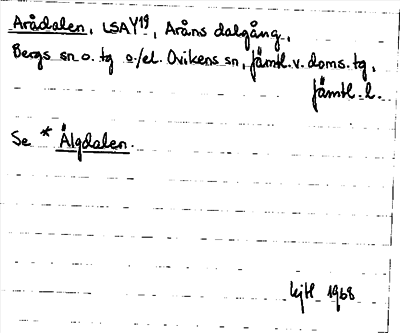 Arådalen, LSAY19, Aråns dalgång,
Bergs sn o. tg o./el. Ovikens sn, Jämtl. v. doms. tg,
Jämtl. l.
Se * Älgdalen.
1968